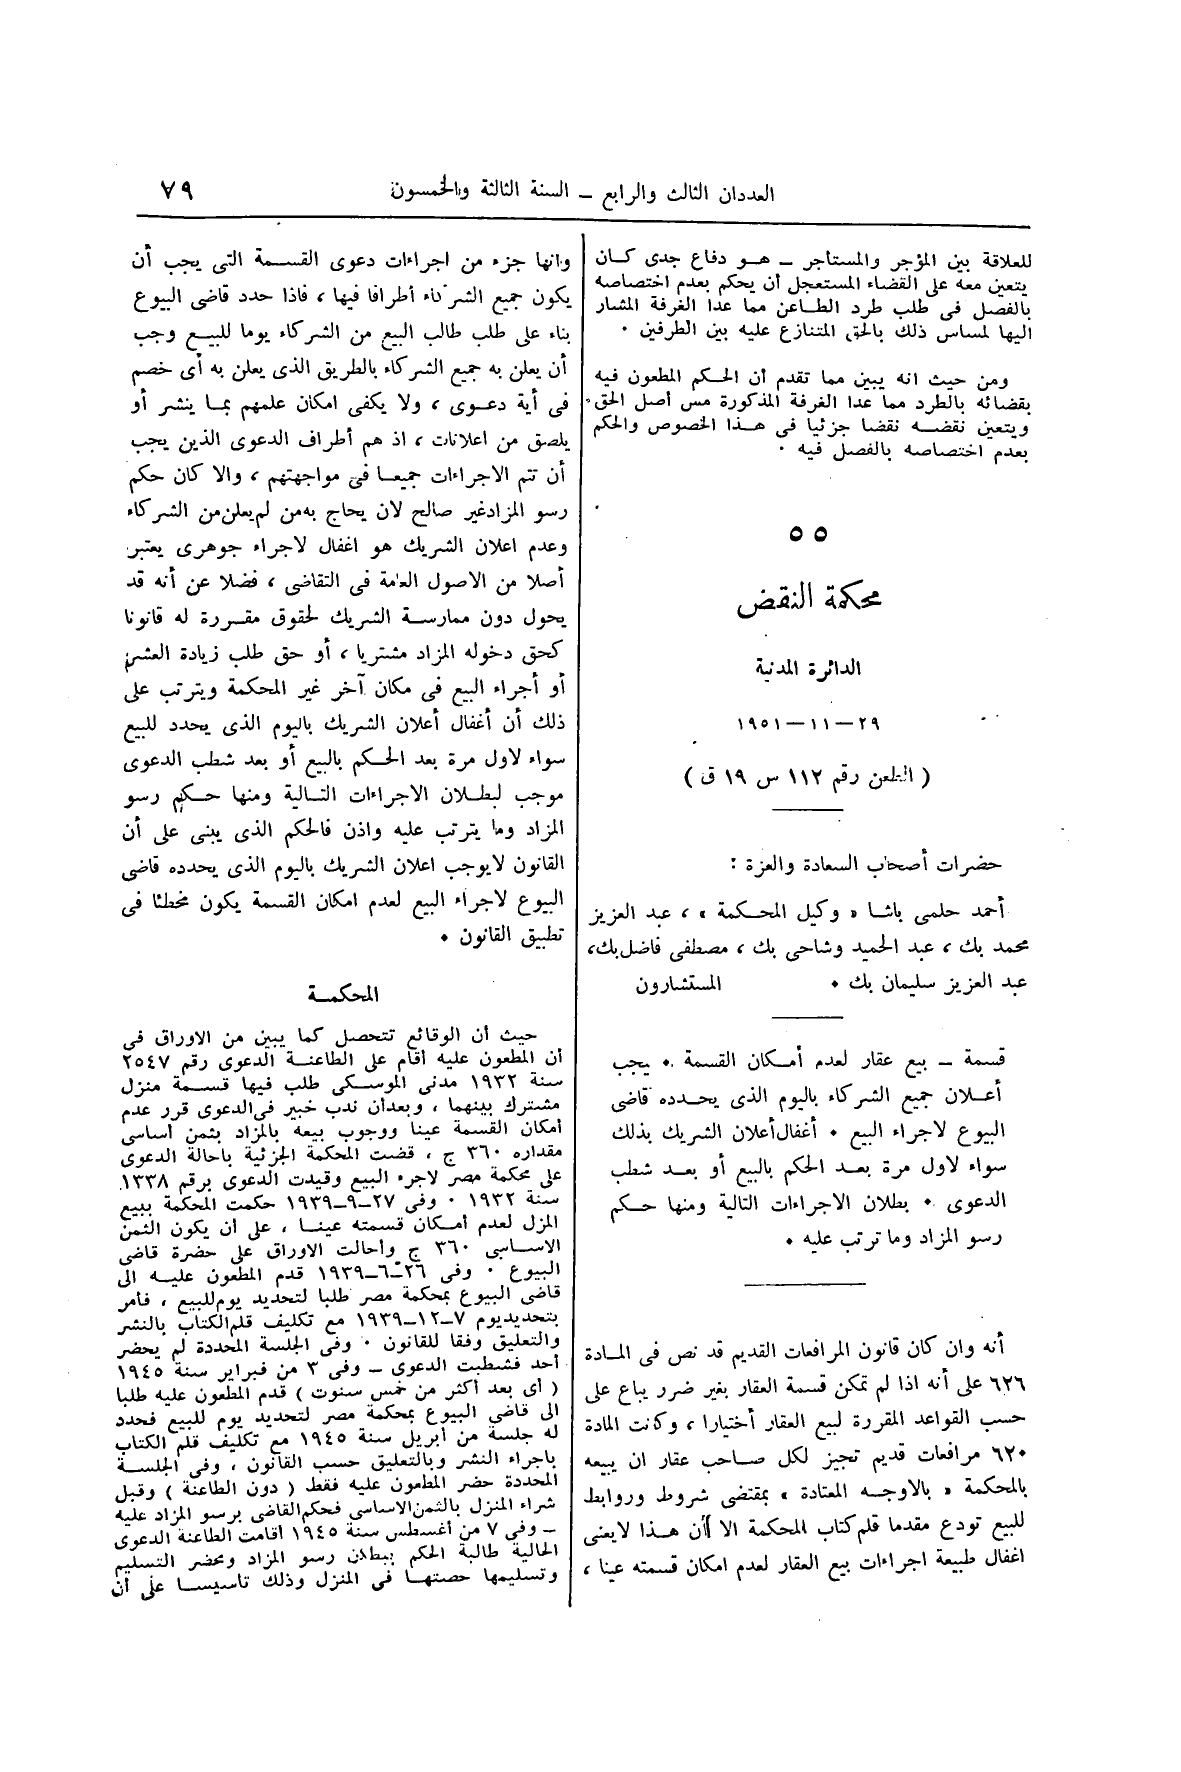 العددان الثالث والرابع – السنة الثالثة والخمسون
٧٩
للعلاقة بين المؤجر والمستأجر – هو دفاع جدى كان
يتعين معه على القضاء المستعجل أن يحكم بعدم اختصاصه
بالفصل فى طلب طرد الطاعن مما عدا الغرفة المشار
اليها لمساس ذلك بالحق المتنازع عليه بين الطرفين ٠
ومن حيث انه يبين مما تقدم أن الحكم المطعون فيه
بقضائه بالطرد مما عدا الغرفة المذكورة مس أصل الحق
ويتعين نقضه نقضا جزئيا فى هذا الخصوص والحكم
بعدم اختصاصه بالفصل فيه ٠
٥٥
محكمة النقض
الدائرة المدنية
٢٩ – ١١ – ١٩٥١
( الطعن رقم ١١٢ س ١٩ ق )
حضرات أصحاب السعادة والعزة :
أحمد حلمى باشا « وكيل المحكمة » ، عبد العزيز
محمد بك ، عبد الحميد وشاحى بك ، مصطفى فاضل بك،
عبد العزيز سليمان بك ٠ المستشارون
قسمة – بيع عقار لعدم أمكان القسمة ٠ يجب
أعلان جميع الشركاء باليوم الذى يحدده قاضى
البيوع لاجراء البيع ٠ أغفال أعلان الشريك بذلك
سواء لاول مرة بعد الحكم بالبيع أو بعد شطب
الدعوى ٠ بطلان الاجراءات التالية ومنها حكم
رسو المزاد وما ترتب عليه ٠
أنه وان كان قانون المرافعات القديم قد نص فى المادة
٦٢٦ على أنه اذا لم تمكن قسمة العقار بغير ضرر يباع على
حسب القواعد المقررة لبيع العقار أختيارا ، وكانت المادة
٦٢٠ مرافعات قديم تجيز لكل صاحب عقار ان يبيعه
بالمحكمة « بالاوجه المعتادة » بمقتضى شروط وروابط
للبيع تودع مقدما قلم كتاب المحكمة الا أن هذا لا يعنى
اغفال طبيعة اجراءات بيع العقار لعدم امكان قسمته عينا ،
وانها جزء من اجراءات دعوى القسمة التى يجب أن
يكون جميع الشركاء أطرافا فيها ، فاذا حدد قاضى البيوع
بناء على طلب طالب البيع من الشركاء يوما للبيع وجب
أن يعلن به جميع الشركاء بالطريق الذى يعلن به أى خصم
فى أية دعوى ، ولا يكفى امكان علمهم بما ينشر أو
يلصق من اعلانات ، اذ هم أطراف الدعوى الذين يجب
أن تتم الاجراءات جميعا فى مواجهتهم ، والا كان حكم
رسو المزاد غير صالح لان يحاج به من لم يعلن من الشركاء
وعدم اعلان الشريك هو اغفال لاجراء جوهرى يعتبر
أصلا من الاصول العامة فى التقاضى ، فضلا عن أنه قد
يحول دون ممارسة الشريك لحقوق مقررة له قانونا
كحق دخوله المزاد مشتريا ، أو حق طلب زيادة العشر
أو أجراء البيع فى مكان آخر غير المحكمة ويترتب على
ذلك أن أغفال أعلان الشريك باليوم الذى يحدد للبيع
سواء لاول مرة بعد الحكم بالبيع أو بعد شطب الدعوى
موجب لبطلان الاجراءات التالية ومنها حكم رسو
المزاد وما يترتب عليه واذن فالحكم الذى يبنى على أن
القانون لا يوجب اعلان الشريك باليوم الذى يحدده قاضى
البيوع لاجراء البيع لعدم امكان القسمة يكون مخطئا فى
تطبيق القانون ٠
المحكمة
حيث أن الوقائع تتحصل كما يبين من الاوراق فى
أن المطعون عليه أقام على الطاعنة الدعوى رقم ٢٥٤٧
سنة ١٩٣٢ مدنى الموسكى طلب فيها قسمة منزل
مشترك بينهما ، وبعد أن ندب خبير فى الدعوى قرر عدم
أمكان القسمة عينا ووجوب بيعه بالمزاد بثمن أساسى
مقداره ٣٦٠ ج ، قضت المحكمة الجزئية باحالة الدعوى
على محكمة مصر لاجراء البيع وقيدت الدعوى برقم ١٣٣٨
سنة ١٩٣٢ ٠ وفى ٢٧–٩–١٩٣٩ حكمت المحكمة ببيع
المنزل لعدم أمكان قسمته عينا ، على أن يكون الثمن
الاساسى ٣٦٠ ج وأحالت الاوراق على حضرة قاضى
البيوع ٠ وفى ٢٦–٦–١٩٣٩ قدم المطعون عليه الى
قاضى البيوع بمحكمة مصر طلبا لتحديد يوم للبيع ، فأمر
بتحديد يوم ٧–١٢–١٩٣٩ مع تكليف قلم الكتاب بالنشر
والتعليق وفقا للقانون ٠ وفى الجلسة المحددة لم يحضر
أحد فشطبت الدعوى – وفى ٣ من فبراير سنة ١٩٤٥
( أى بعد أكثر من خمس سنوت ) قدم المطعون عليه طلبا
الى قاضى البيوع بمحكمة مصر لتحديد يوم للبيع فحدد
له جلسة من أبريل سنة ١٩٤٥ مع تكليف قلم الكتاب
باجراء النشر وبالتعليق حسب القانون ، وفى الجلسة
المحددة حضر المطعون عليه فقط ( دون الطاعنة ) وقبل
شراء المنزل بالثمن الاساسى فحكم القاضى برسو المزاد عليه
– وفى ٧ من أغسطس سنة ١٩٤٥ أقامت الطاعنة الدعوى
الحالية طالبة الحكم ببطلان رسو المزاد ومحضر التسليم
وتسليمها حصتها فى المنزل وذلك تأسيسا على أن